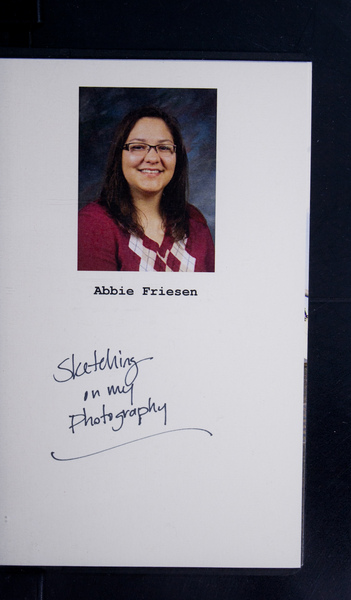 Abbie Friesen
Sketching
on my
Photography